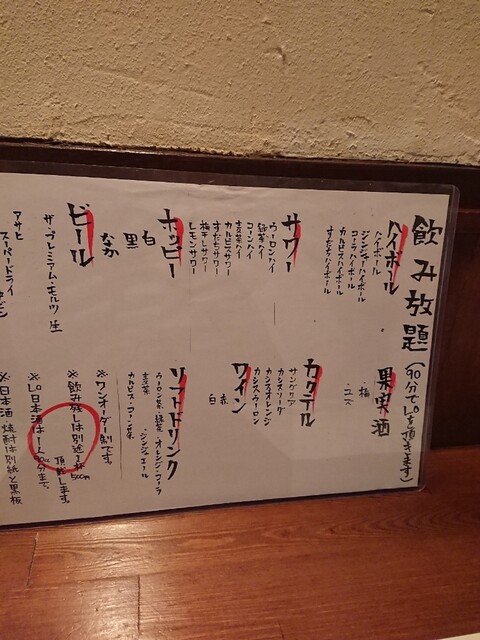 飲み放題(90分でL.oを頂きます)
ハイボール
ハイボール
ジンジャーハイボール
コーラハイボール
カルピスハイボール
すだちハイボール
サワー
ウーロンハイ
緑茶ハイ
コーンハイ
玄米茶ハイ
カルピスサワー
すだちサワー
梅干しサワー
レモンサワー
ホッピー
白
黒
なか
ビール
ザ・プレミアム・モルツ 生
アサヒ
スーパードライ
果実酒
・梅
・ユズ
カクテル
サングリア
カシスソーダ
カシスオレンジ
カシスウーロン
ワイン
・赤
白
ソフトドリンク
ウーロン茶・緑茶・オレンジ・コーラ
玄米茶 ・ジンジャエール
カルピス・コーン茶
※ワンオーダー制です。
※飲み残しは別途1杯500円
頂戴します。
※L.o日本酒は1人90cc分まで。
※日本酒 焼酎は別紙と黒板